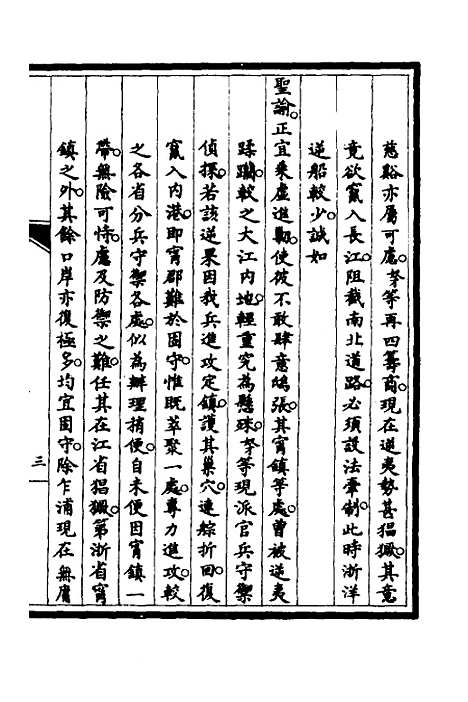 慈谿亦屬可慮。奏等再四籌商。現在逆夷勢甚猖獗。其意
竟欲竄入長江。阻截南北道路。必須設法牽制。此時浙洋
逆船較少。誠如
聖諭。正宜乘虛進勦。使彼不敢肆意鴟張。其甯鎮等處。曾被逆夷
蹂躪。較之大江內地。輕重究為懸殊。奏等現派官兵守禦
偵探。若該逆果因我兵進攻定鎮。護其巢穴。連綜折回。復
竄入內港。即甯郡難於固守。惟既萃聚一處。專力進攻。較
之各省分兵守禦各處。似為辦理稍便。自未便因甯鎮一
帶。無險可恃。慮及防禦之難。任其在江省猖獗。第浙省甯
鎮之外。其餘口岸亦復極多。均宜固守。除乍浦現在無庸
三